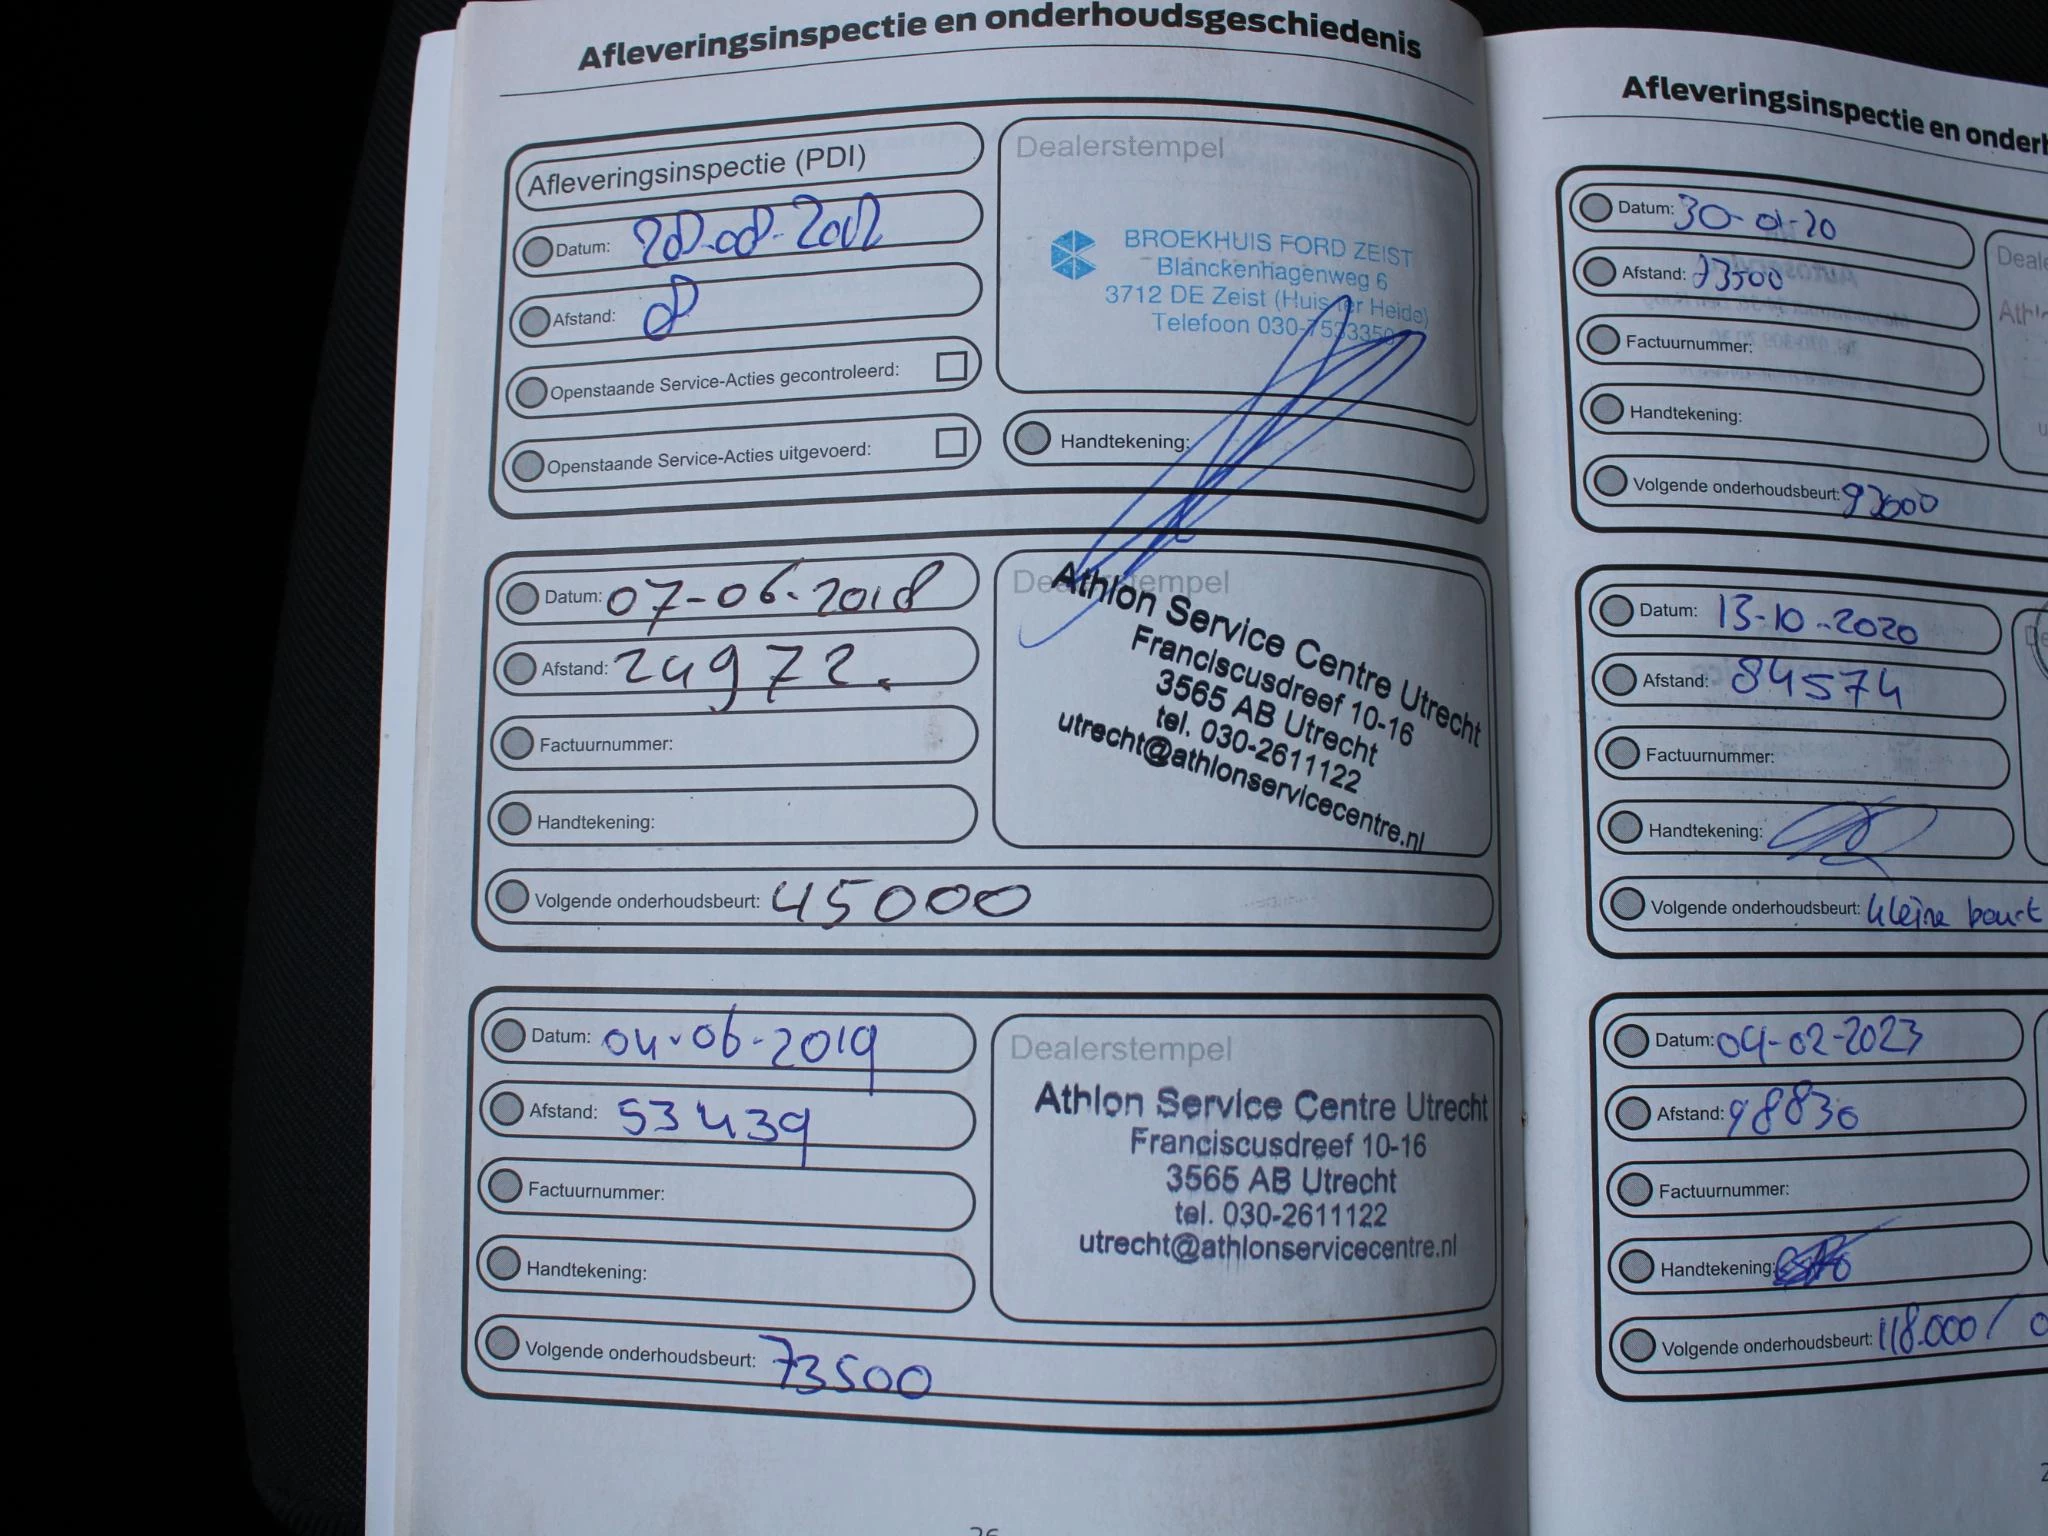 Afleveringsinspectie en onderhoudsgeschiedenis
Afleveringsinspectie (PDI)
Datum:
Afstand: 8
Openstaande Service-Acties gecontroleerd:
Openstaande Service-Acties uitgevoerd:
Dealerstempel
BROEKHUIS FORD ZEIST
Blanckenhagenweg 6
3712 DE Zeist (Huis ter Heide)
Telefoon 030-7533350
Handtekening:
Datum: 07-06-2018
Afstand: 24972.
Factuurnummer:
Handtekening:
Volgende onderhoudsbeurt: 45000
Dealerstempel
Athlon Service Centre Utrecht
Franciscusdreef 10-16
3565 AB Utrecht
tel. 030-2611122
utrecht@athlonservicecentre.nl
Datum: 04-06-2019
Afstand: 53439
Factuurnummer:
Handtekening:
Volgende onderhoudsbeurt: 73500
Dealerstempel
Athlon Service Centre Utrecht
Franciscusdreef 10-16
3565 AB Utrecht
tel. 030-2611122
utrecht@athlonservicecentre.nl
Afleveringsinspectie en onderh
Datum: 30-01-20
Afstand: 73500
Factuurnummer:
Handtekening:
Volgende onderhoudsbeurt: 93000
Deale
Datum: 13-10-2020
Afstand: 84574
Factuurnummer:
Handtekening:
Volgende onderhoudsbeurt: kleine beurt
Datum: 04-02-2023
Afstand: 98830
Factuurnummer:
Handtekening:
Volgende onderhoudsbeurt: 118.000 / 0